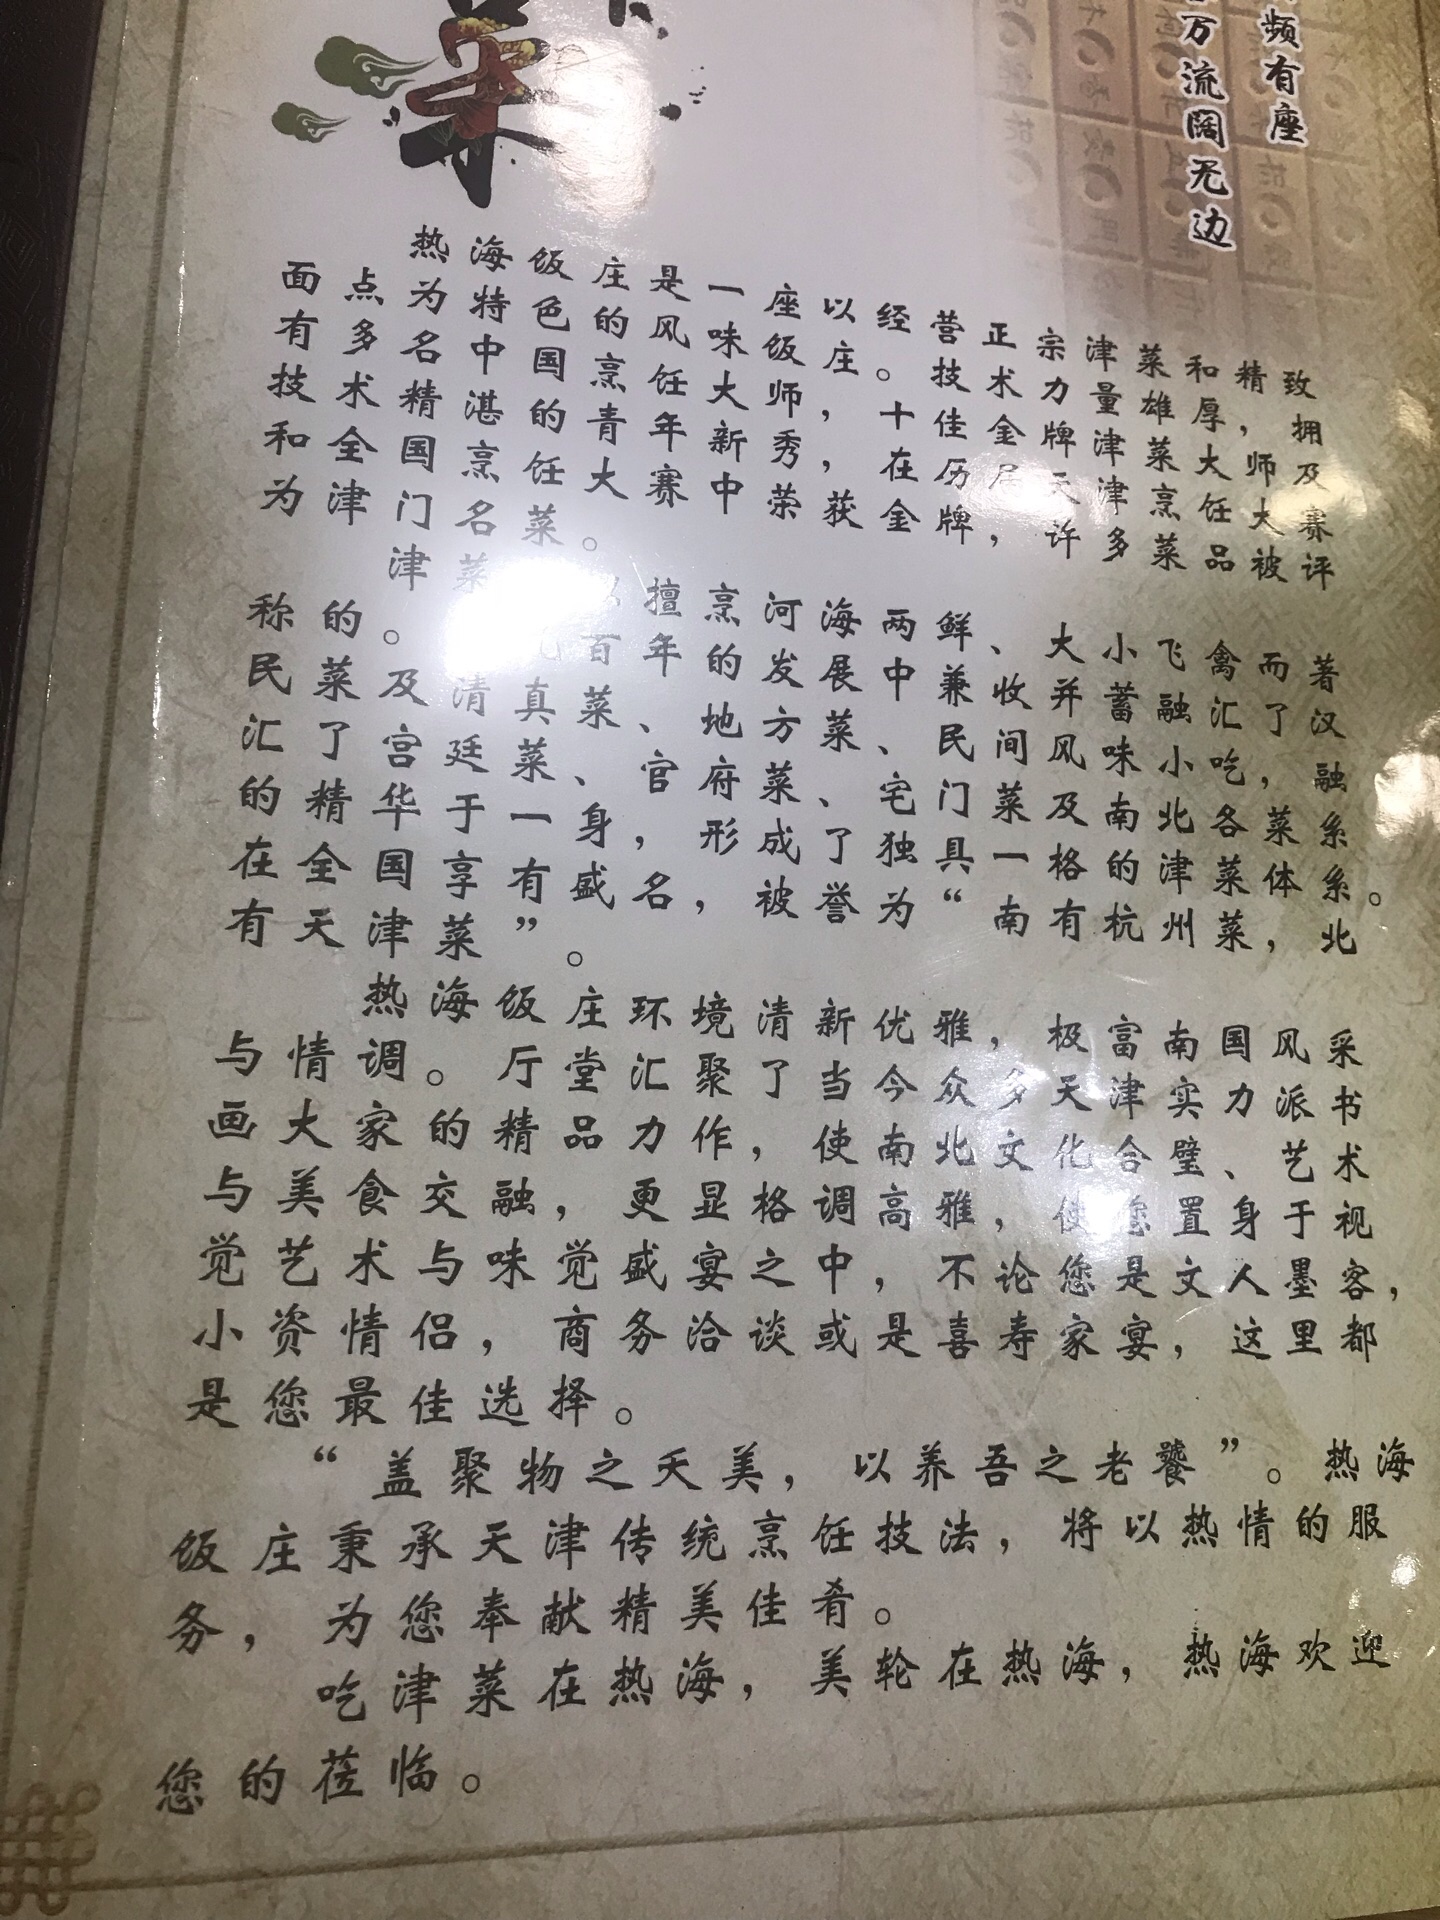 菜
频有座
万流阔无边
热海饭庄是一座以经营正宗津菜和精致
面点为特色的风味饭庄。技术力量雄厚,拥
有多名中国烹饪大师,十佳金牌津菜大师及
技术精湛的青年新秀,在历届天津烹饪大赛
和全国烹饪大赛中荣获金牌,许多菜品被评
为津门名菜。
津菜 擅烹河海两鲜、大小飞禽而著
称。 百年的发展中兼收并蓄融汇了汉
民的菜及清真菜、地方菜、民间风味小吃,融
汇了宫廷菜、官府菜、宅门菜及南北各菜系
的精华于一身,形成了独具一格的津菜体系。
在全国享有盛名,被誉为“南有杭州菜,北
有天津菜”。
热海饭庄环境清新优雅,极富南国风采
与情调。厅堂汇聚了当今众多天津实力派书
画大家的精品力作,使南北文化合璧、艺术
与美食交融,更显格调高雅,使您置身于视
觉艺术与味觉盛宴之中,不论您是文人墨客,
小资情侣,商务洽谈或是喜寿家宴,这里都
是您最佳选择。
“盖聚物之夭美,以养吾之老饕”。热海
饭庄秉承天津传统烹饪技法,将以热情的服
务,为您奉献精美佳肴。
吃津菜在热海,美轮在热海,热海欢迎
您的莅临。